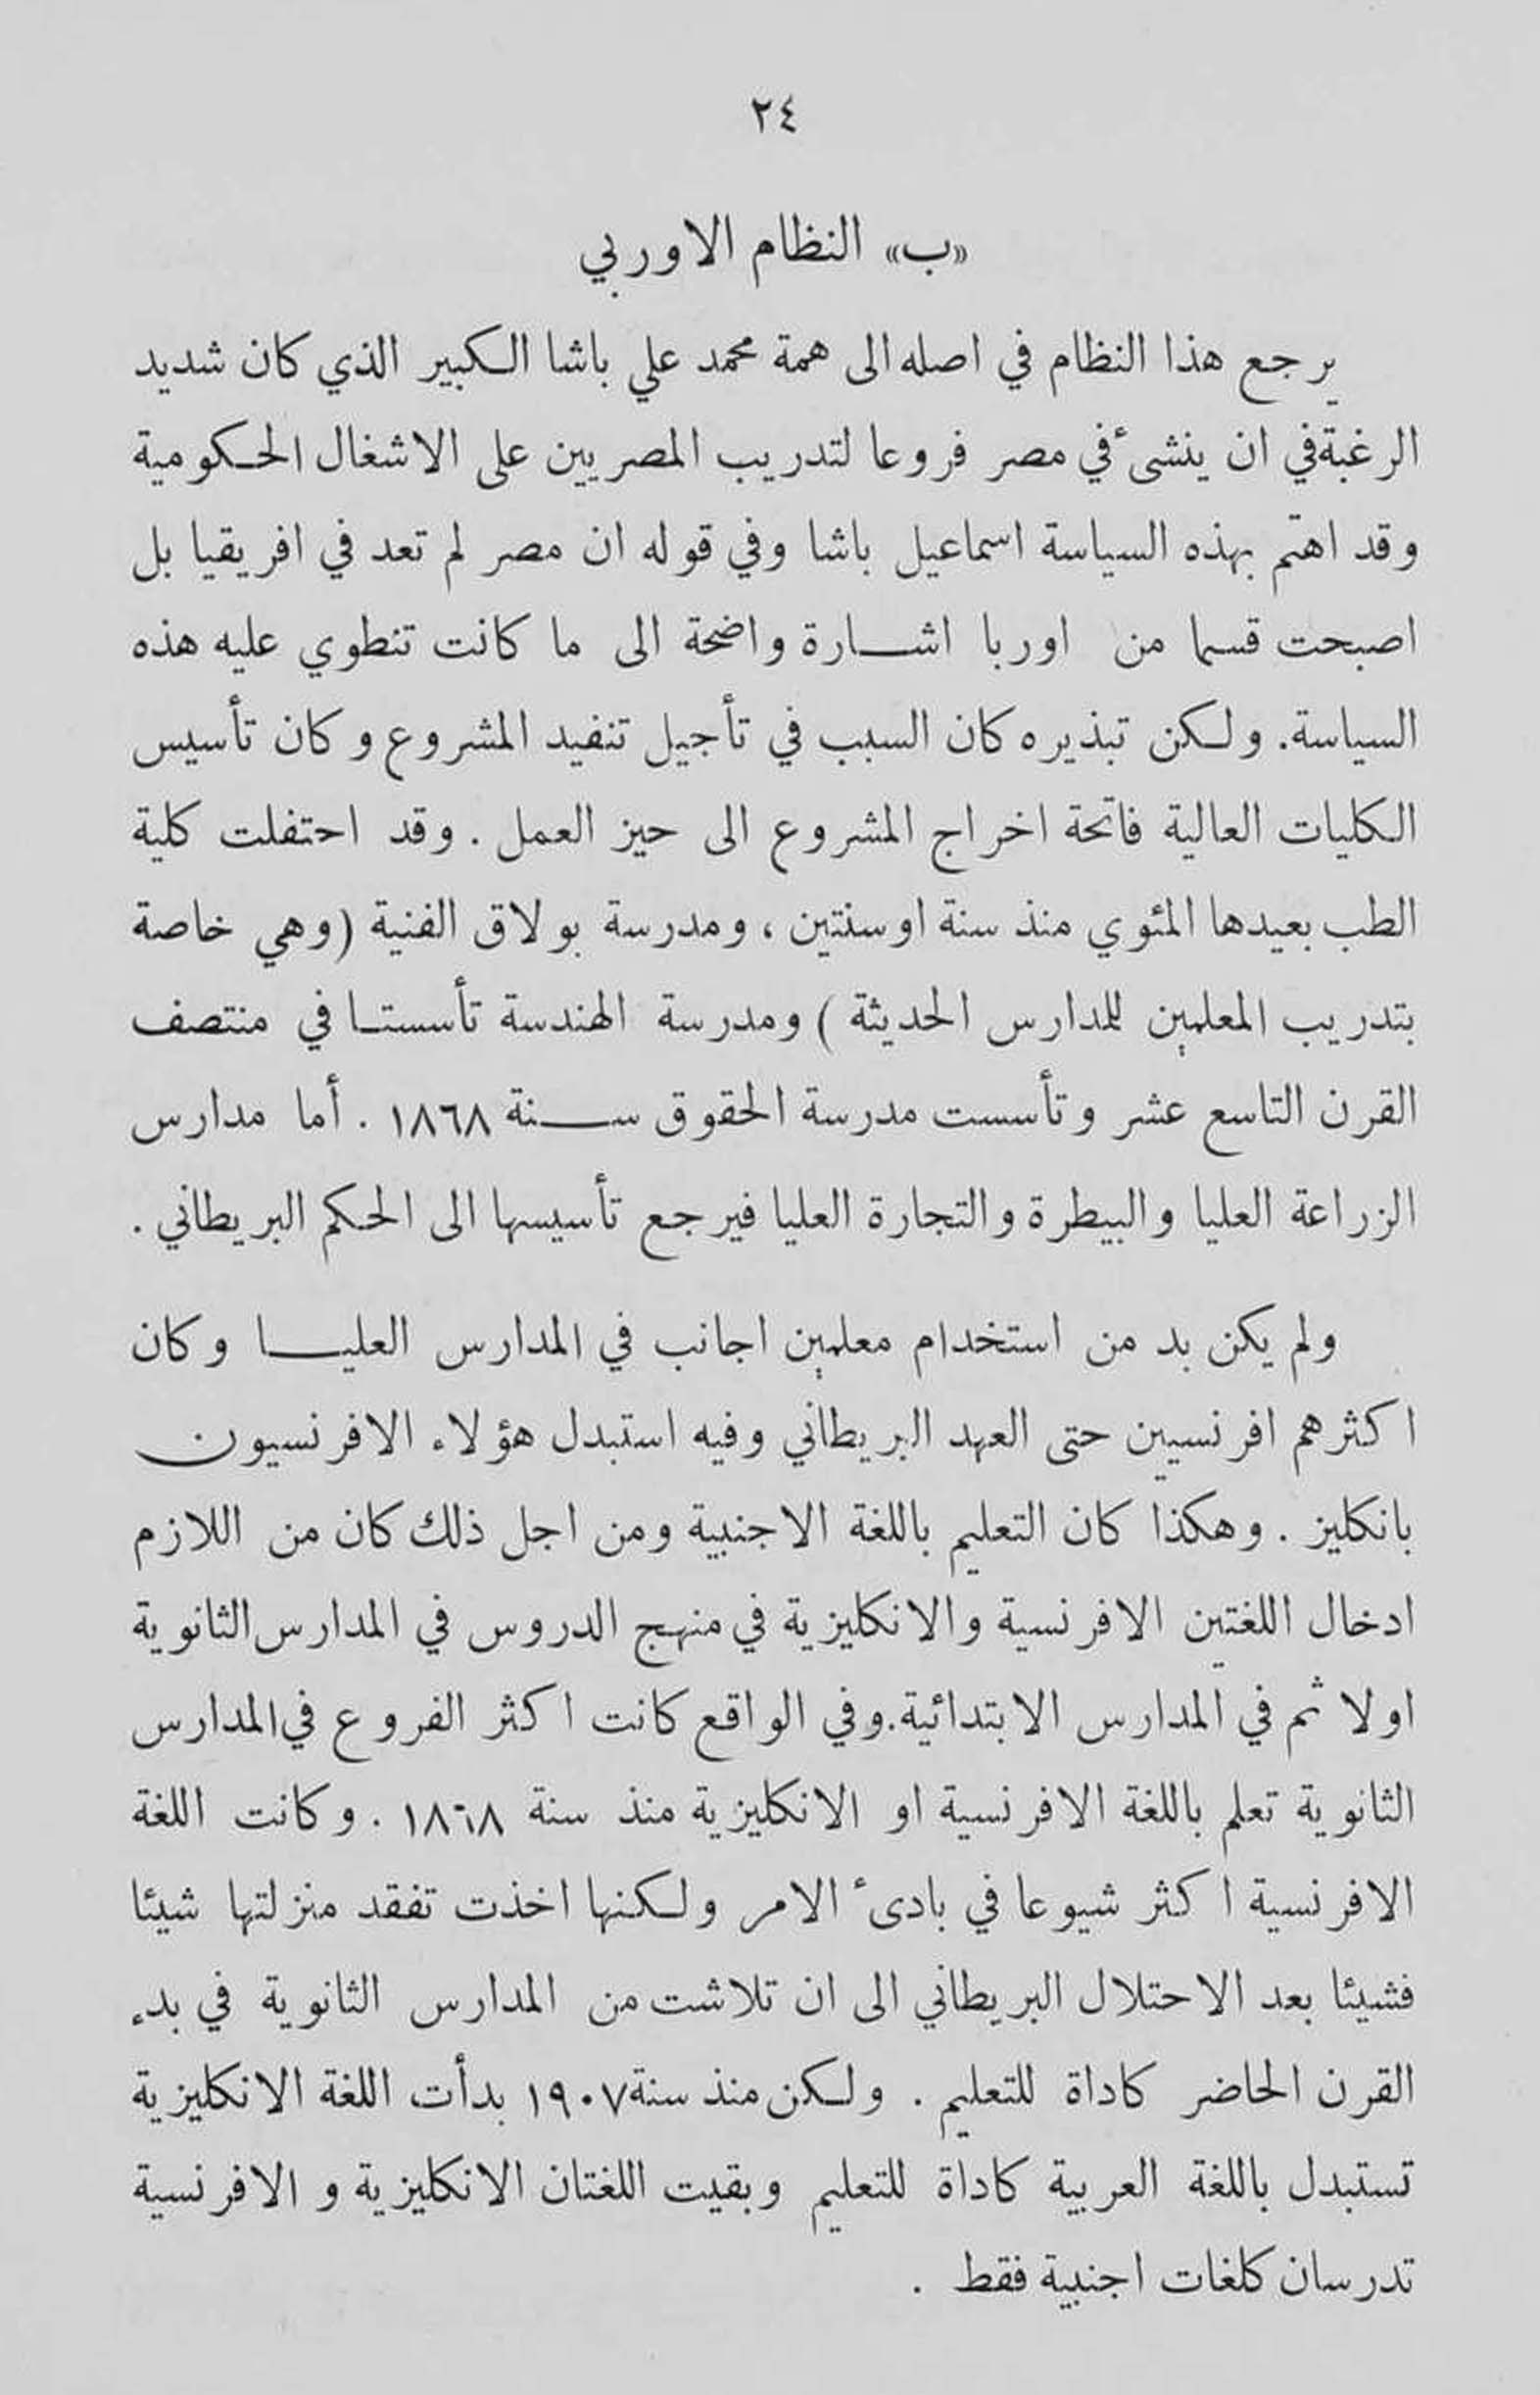 ٢٤
«ب» النظام الاوربي
يرجع هذا النظام في اصله الى همة محمد علي باشا الكبير الذي كان شديد
الرغبة في ان ينشئ في مصر فروعا لتدريب المصريين على الاشغال الحكومية
وقد اهتم بهذه السياسة اسماعيل باشا وفي قوله ان مصر لم تعد في افريقيا بل
اصبحت قسما من اوربا اشارة واضحة الى ما كانت تنطوي عليه هذه
السياسة. ولكن تبذيره كان السبب في تأجيل تنفيد المشروع وكان تأسيس
الكليات العالية فاتحة اخراج المشروع الى حيز العمل . وقد احتفلت كلية
الطب بعيدها المئوي منذ سنة او سنتين ، ومدرسة بولاق الفنية (وهي خاصة
بتدريب المعلمين للمدارس الحديثة ) ومدرسة الهندسة تأسستا في منتصف
القرن التاسع عشر وتأسست مدرسة الحقوق سنة ١٨٦٨ . أما مدارس
الزراعة العليا والبيطرة والتجارة العليا فيرجع تأسيسها الى الحكم البريطاني .
ولم يكن بد من استخدام معلمين اجانب في المدارس العليا وكان
اكثرهم افرنسيين حتى العهد البريطاني وفيه استبدل هؤلاء الافرنسيون
بانكليز . وهكذا كان التعليم باللغة الاجنبية ومن اجل ذلك كان من اللازم
ادخال اللغتين الافرنسية والانكليزية في منهج الدروس في المدارس الثانوية
اولا ثم في المدارس الابتدائية. وفي الواقع كانت اكثر الفروع في المدارس
الثانوية تعلم باللغة الافرنسية او الانكليزية منذ سنة ١٨٦٨ . وكانت اللغة
الافرنسية اكثر شيوعا في بادئ الامر ولكنها اخذت تفقد منزلتها شيئا
فشيئا بعد الاحتلال البريطاني الى ان تلاشت من المدارس الثانوية في بدء
القرن الحاضر كاداة للتعليم . ولكن منذ سنة ١٩٠٧ بدأت اللغة الانكليزية
تستبدل باللغة العربية كاداة للتعليم وبقيت اللغتان الانكليزية و الافرنسية
تدرسان كلغات اجنبية فقط .